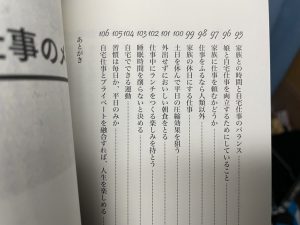 仕事の
95 家族との時間と自宅仕事のバランス
96 娘と自宅仕事を両立するためにしていること
97 家族に仕事を頼むかどうか
98 仕事をふるなら人類以外
99 家族の休日にする仕事
100 土日を休んで平日の圧縮効果を狙う
101 外出せずにおいしい朝食をとる
102 仕事中にランチをつくる楽しみを持とう
103 睡眠時間を減らさないと決める
104 自宅でできる運動
105 習慣は毎日か、平日のみか
106 自宅仕事とプライベートを融合すれば、人生を楽しめる
あとがき